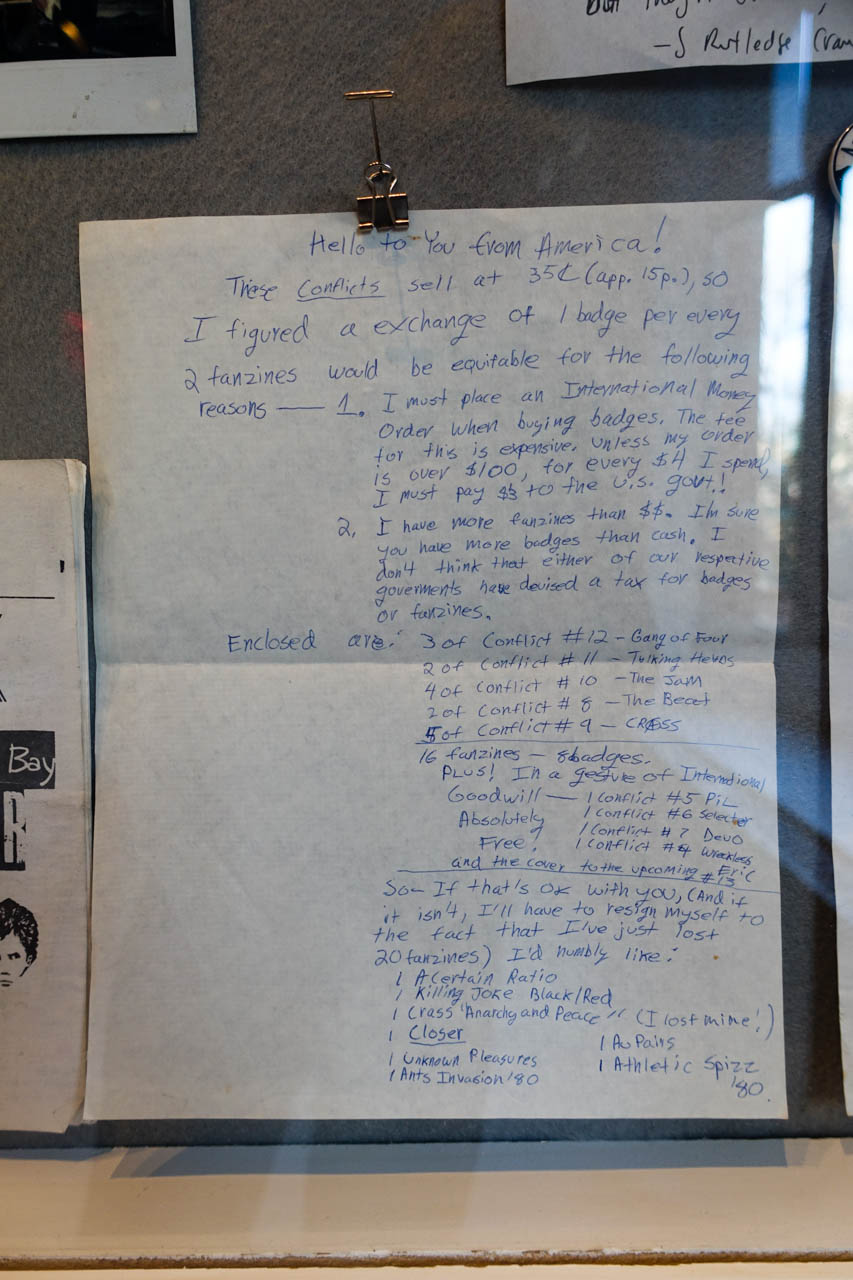 but they'r
—J Rutledge Cram
Hello to You from America!
These Conflicts sell at 35¢ (app. 15p.), so
I figured a exchange of 1 badge per every
2 fanzines would be equitable for the following
reasons — 1. I must place an International Money
Order when buying badges. The fee
for this is expensive. unless my order
is over $100, for every $4 I spend,
I must pay $3 to the U.S. govt.!
2. I have more fanzines than $$. I'm sure
you have more badges than cash. I
don't think that either of our respective
goverments have devised a tax for badges
or fanzines.
Enclosed are: 3 of Conflict #12 - Gang of Four
2 of Conflict #11 - Talking Heads
4 of Conflict #10 - The Jam
2 of Conflict #8 - The Beat
5 of Conflict #9 - CRASS
16 fanzines - 8 badges.
PLUS! In a gesture of International
Goodwill — 1 Conflict #5 PiL
Absolutely 1 Conflict #6 Selecter
Free! 1 Conflict #7 Devo
1 Conflict #4 Wreckless Eric
and the cover to the upcoming #13
So- If that's OK with you, (And if
it isn't, I'll have to resign myself to
the fact that I've just lost
20 fanzines) I'd humbly like:
1 A Certain Ratio
1 Killing Joke Black/Red
1 Crass "Anarchy and Peace" (I lost mine!)
1 Closer
1 Au Pairs
1 Unknown Pleasures
1 Athletic Spizz '80.
1 Ants Invasion '80
Bay